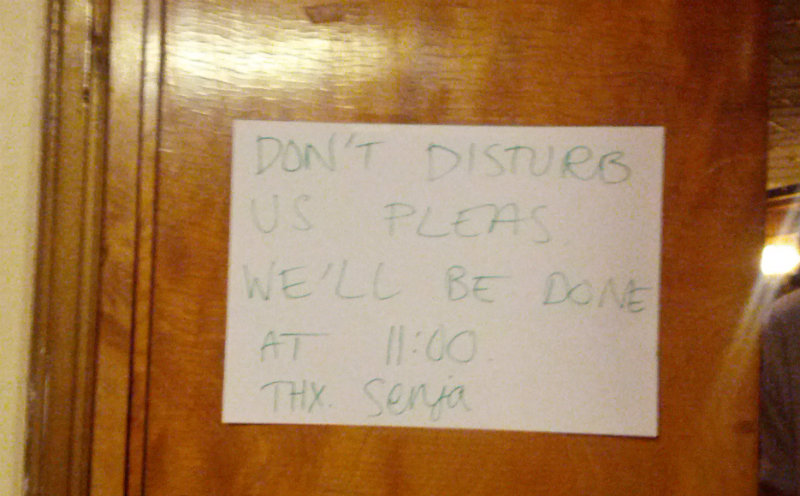 DON'T DISTURB
US PLEAS
WE'LL BE DONE
AT 11:00.
THX. Senja